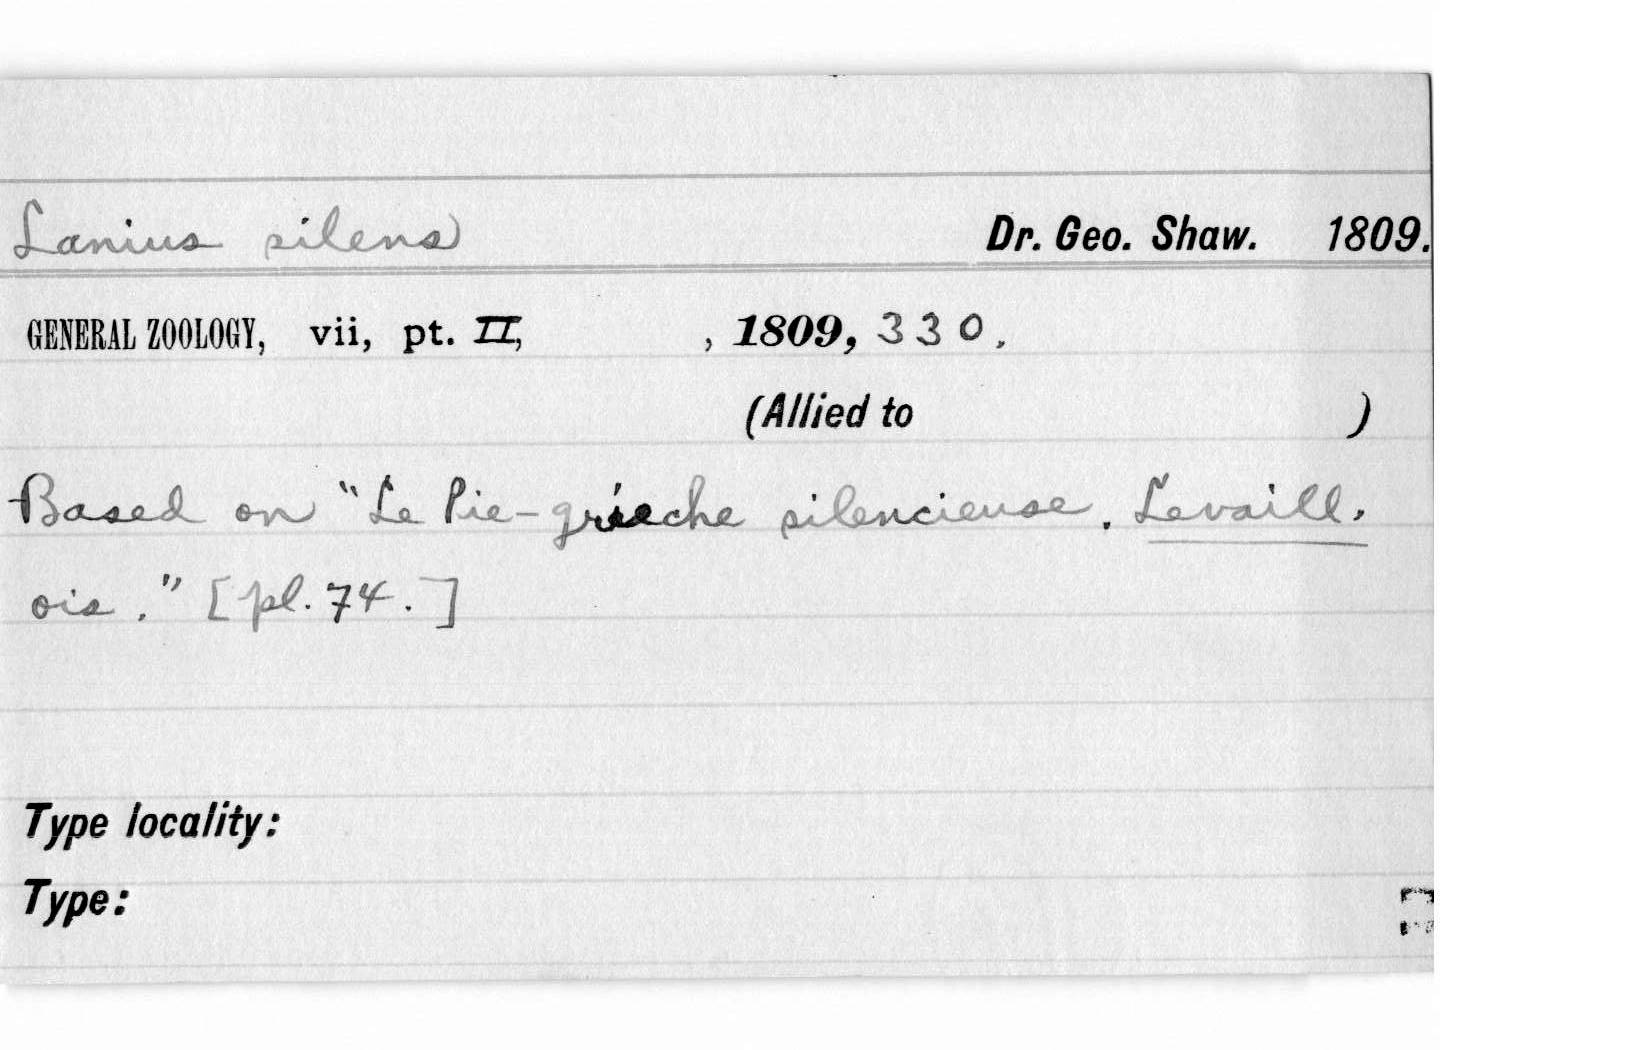 Lanius silens Dr. Geo. Shaw. 1809.
GENERAL ZOOLOGY, vii, pt. II, , 1809, 330.
(Allied to )
Based on "Le Pie-grièche silencieuse. Levaill.
ois." [pl. 74.]
Type locality:
Type: